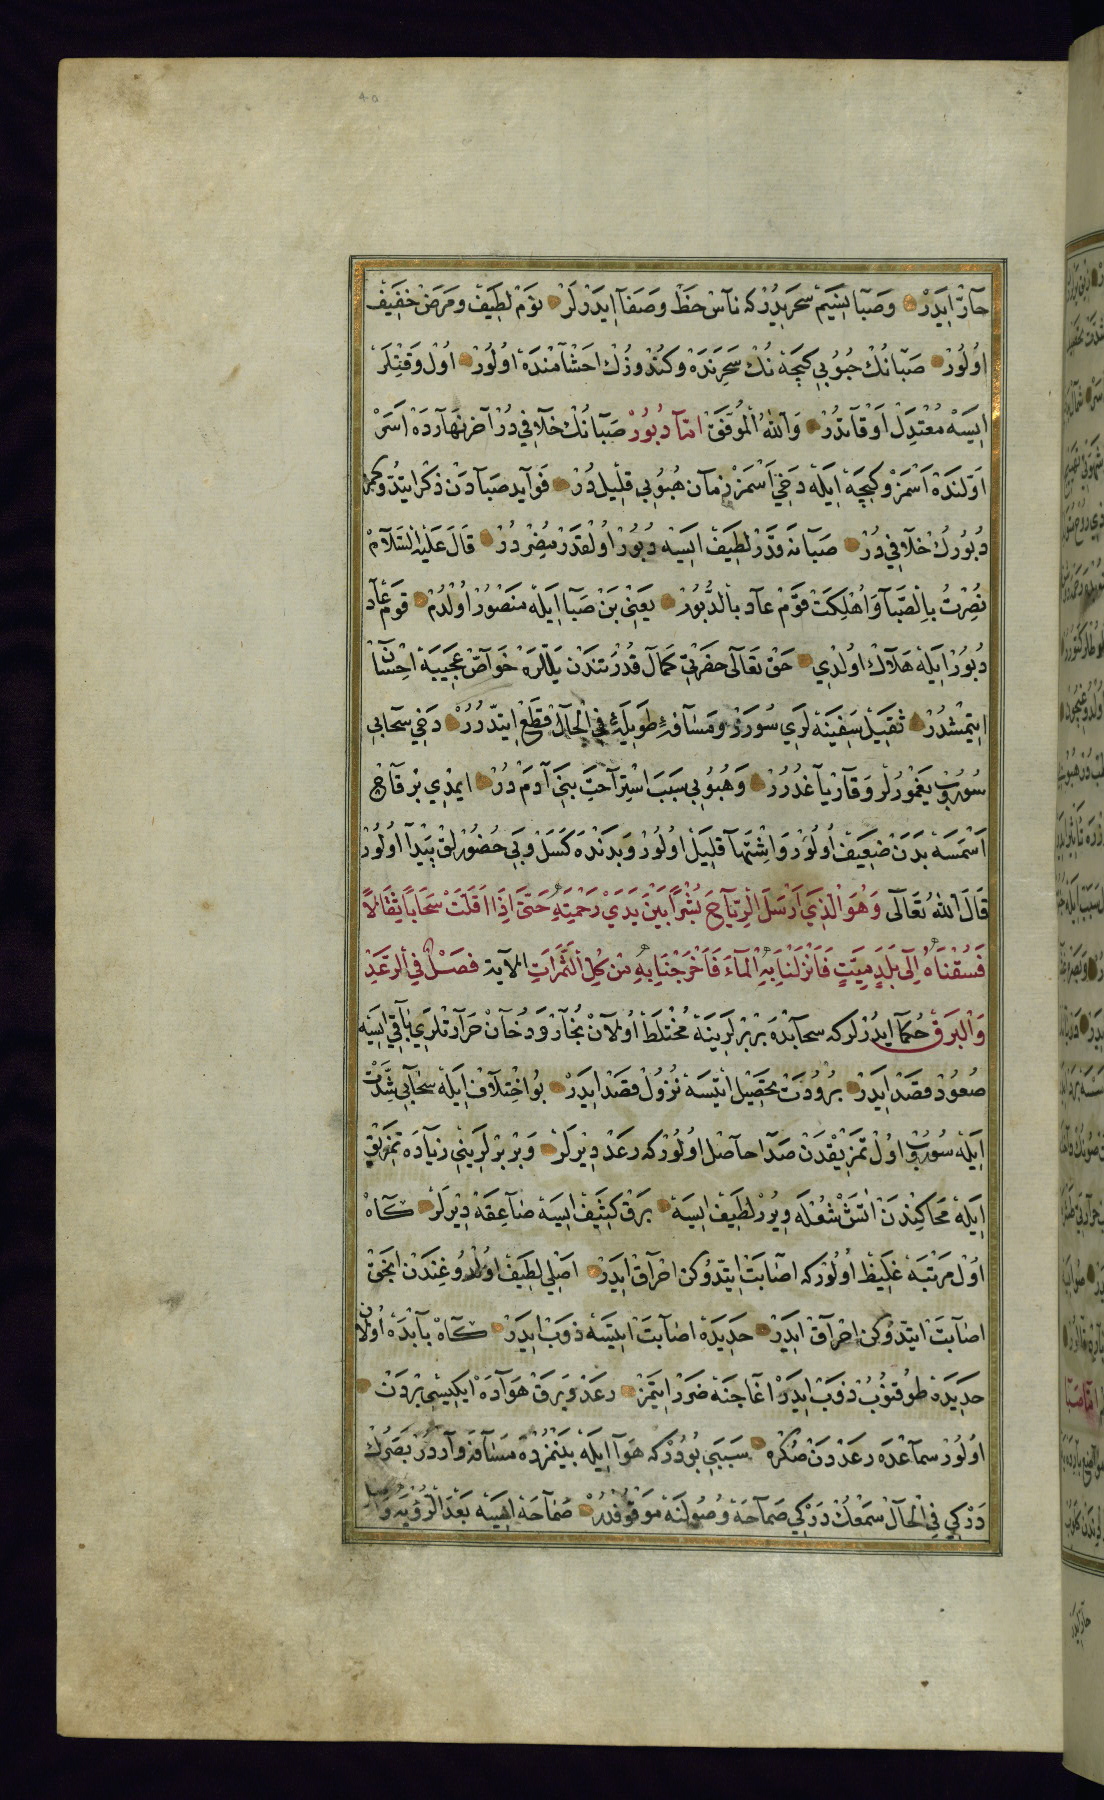 حَآرّْ اِيدَرْ وَصَبَا نَسِيمْ سَحَرِيدُرْكه نَاسْ حَظْ وَصَفَآ اِيدَرْلَرْ نَوْمْ لَطِيفْ ومَرَضْ خَفِيفْ
اُولُورْ صَبَانُكْ هُبُوبِى كِيجَهنُكْ سَحَرِنْدَه وكُنْدُوزُكْ اَخْشَامِنْدَه اُولُورْ اُولْ وَقْتلَرْ
اِيسَه مُعْتَدِلْ اَوْقَاتدُرْ وَاللهُ الْمُوَفِّقْ امّا دَبُورْ صَبَانُكْ خِلَافِى دُرْ آخِر نَهَارْدَه اَسَرْ
اَوّلِنْدَه اَسْمَزْ وكِيجَه اِيلَه دَخِي اَسْمَزْ زمَانْ هُبُوبِى قَلِيل دُرْ فَوَايِد صَبَادَنْ ذكْر ايتدُوكمز
دَبُورُكْ خِلَافِى دُرْ صَبَا نَه قَدَرْ لَطِيفْ اِيسَه دَبُورْ اُولْقَدَرْ مُضِرْ دُرْ قَالَ عَلَيْهِ السَّلَامْ
نُصِرْتُ بِالصَّبَا وَاُهْلِكَتْ قَوْمُ عَاد بِالدَّبُورْ يَعْنِى بَنْ صَبَا اِيلَه مَنْصُورْ اُولْدُمْ قَوْمِ عَاد
دَبُورْ اِيلَه هَلَاكْ اُولْدِي حَقْ تَعَالَى حَضْرَتِى كَمَالْ قُدْرَتِنْدَنْ يَلْلَرَه خَوَاصْ عَجِيبَه اِحْسَانْ
اِيتْمِشْدُرْ ثَقِيلْ سَفِينَه لَرِي سُورَرْ ومَسَافَهء طَوِيلَهيى فِي الْحَالْ قَطْعْ اِيتّدُرُرْ دَخِي سَحَابِى
سُورُوبْ يَغْمُورْلَرْ وَقَارْ يَاغْدُرُرْ وَهُبُوبِى سَبَبَ اِسْتِرَاحَتِ بَنِى آدَمْ دُرْ اِيمْدِي بِرْ قَاچْ
اَسْمَسَه بَدَنْ ضَعِيفْ اُولُورْ وَاِشْتِهَا قَلِيلْ اُولُورْ وَبَدَنْدَه كَسَلْ وبِى حُضُورْلِقْ پَيْدَا اُولُورْ
قَالَ اللهُ تَعَالَى وَهُوَ الَّذِي اَرْسَلَ الرِّيَاحَ بُشْرًا بَيْنَ يَدَيْ رَحْمَتِهِ حَتَّى اِذَا اَقَلَّتْ سَحَابًا ثِقَالًا
فَسُقْنَاهُ اِلَى بَلَدٍ مَيِّتٍ فَاَنْزَلْنَا بِهِ الْمَاءَ فَاَخْرَجْنَا بِهِ مِنْ كُلِّ الثَّمَرَاتِ الآية فَصْلٌ فِي الرَّعْدِ
وَالْبَرْقِ حُكَمَا اِيدُرْلَر كه سحَابْدَه بِرْ بِرْلَرِينَه مُخْتَلَطْ اُولَانْ بُخَارْ وَدُخَانْ حَرَارَتْلَرِي بَاقِي اِيسَه
صُعُودْ قَصْدْ اِيدَرْ بُرُودَتْ تَحْصِيلْ اِتْسَه نُزُولْ قَصْدْ اِيدَرْ بُو اِخْتِلَافْ اِيلَه سَحَابِى شِدَّتْ
اِيلَه سُورُوبْ اُولْ تَمْزِيقْدَنْ صَدَا حَاصِلْ اُولُورْكه رَعَدْ دِيرْلَرْ وَبِرْ بِرْلَرِينِى زِيَادَه تَمْزِيقْ
اِيلَه مُحَاكِنْدَنْ اَتَشْ شُعْلَه وِيرُرْ لَطِيفْ اِيسَه بَرْقْ كَثِيفْ اِيسَه صَاعِقَه دِيرْلَرْ كَاهْ
اُولْ مَرْتَبَه غَلِيظْ اُولُورْكه اِصَابَتْ اِيتْدُوكِن اِحْرَاقْ اِيدَرْ اَصْلِى لَطِيفْ اُولْدُوغِنْدَنْ اَنْجَقْ
اِصَابَتْ اِيتْدُوكِن اِحْرَاقْ اِيدَرْ حَدِيدَه اِصَابَتْ اِيتْسَه ذَوْبْ اِيدَرْ كَاهْ يَابَنْدَه اُولَانْ
حَدِيدَه طُوقُنُوبْ ذَوْبْ اِيدَرْ آغَاجِنَه ضَرَرْ اِيتْمَزْ رَعَدْ وبَرْقْ هَوَادَه اِيكِيسِى بِرْدَنْ
اُولُورْ سَمَاعَدَه رَعَدْدَنْ صُكْرَه سَبَبِى بُودُرْكه هَوَا اِيلَه بَيْنِمُزْدَه مَسَافَه وَارْدُرْ بَصَرُكْ
دَرْكِى فِي الْحَالْ سَمْعُكْ دَرْكِى صِمَاخَه وُصُولِنَه مَوْقُوفْدُرْ